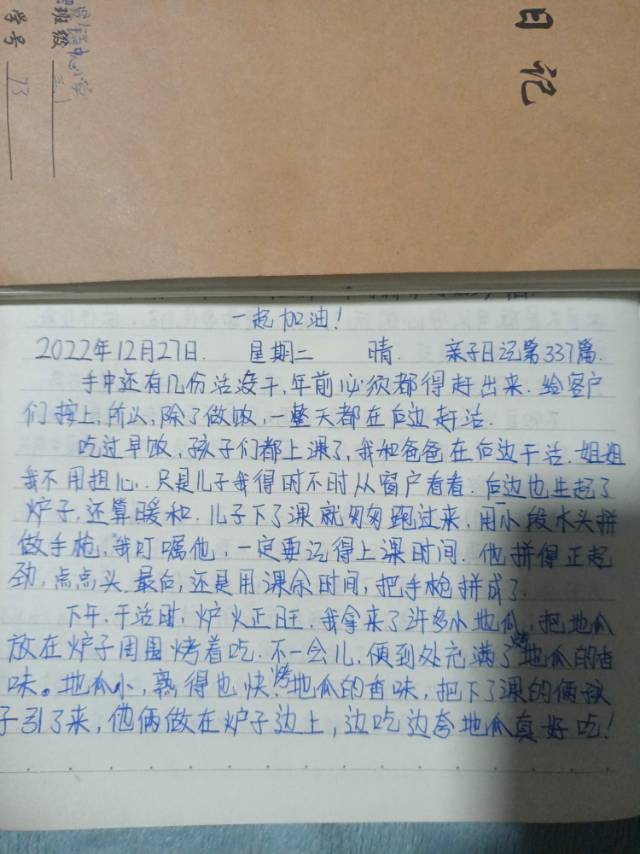 日记
班级 三.1
学号 13
一起加油!
2022年12月27日. 星期二 晴. 亲子日记第337篇.
手中还有几份活没干,年前必须都得赶出来.给客户
们按上,所以,除了做饭,一整天都在后边赶活.
吃过早饭,孩子们都上课了,我和爸爸在后边干活.姐姐
我不用担心.只是儿子我得时不时从窗户看看.后边也生起了
炉子,还算暖和.儿子下了课就匆匆跑过来,用小段木头拼
做手枪,我叮嘱他,一定要记得上课时间.他拼得正起
劲,点点头.最后,还是用课余时间,把手枪拼成了.
下午,干活时,炉火正旺.我拿来了许多小地瓜,把地瓜
放在炉子周围烤着吃.不一会儿,便到处充满了烤地瓜的香
味。地瓜小,熟得也快.烤地瓜的香味,把下了课的俩孩
子引了来,他俩做在炉子边上,边吃边夸地瓜真好吃!